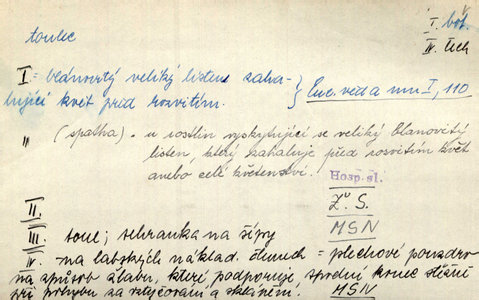 toulec
I. bot.
IV. tech
I = blánovitý veliký listen zaha-
lující květ před rozvitím. } Enc. věd a um I, 110
" (spatha) - u rostlin vyskytující se veliký blanovitý
listen, který zahaluje před rozvitím květ
anebo celé květenství.
Hosp. sl.
II. Zv. S.
III. toul; schránka na šípy MSN
IV. na labských náklad. člunech = plechové pouzdro
na způsob žlabu, které podporuje spodní konec stěžně
při pohybu za vztyčování a sklánění. MSN